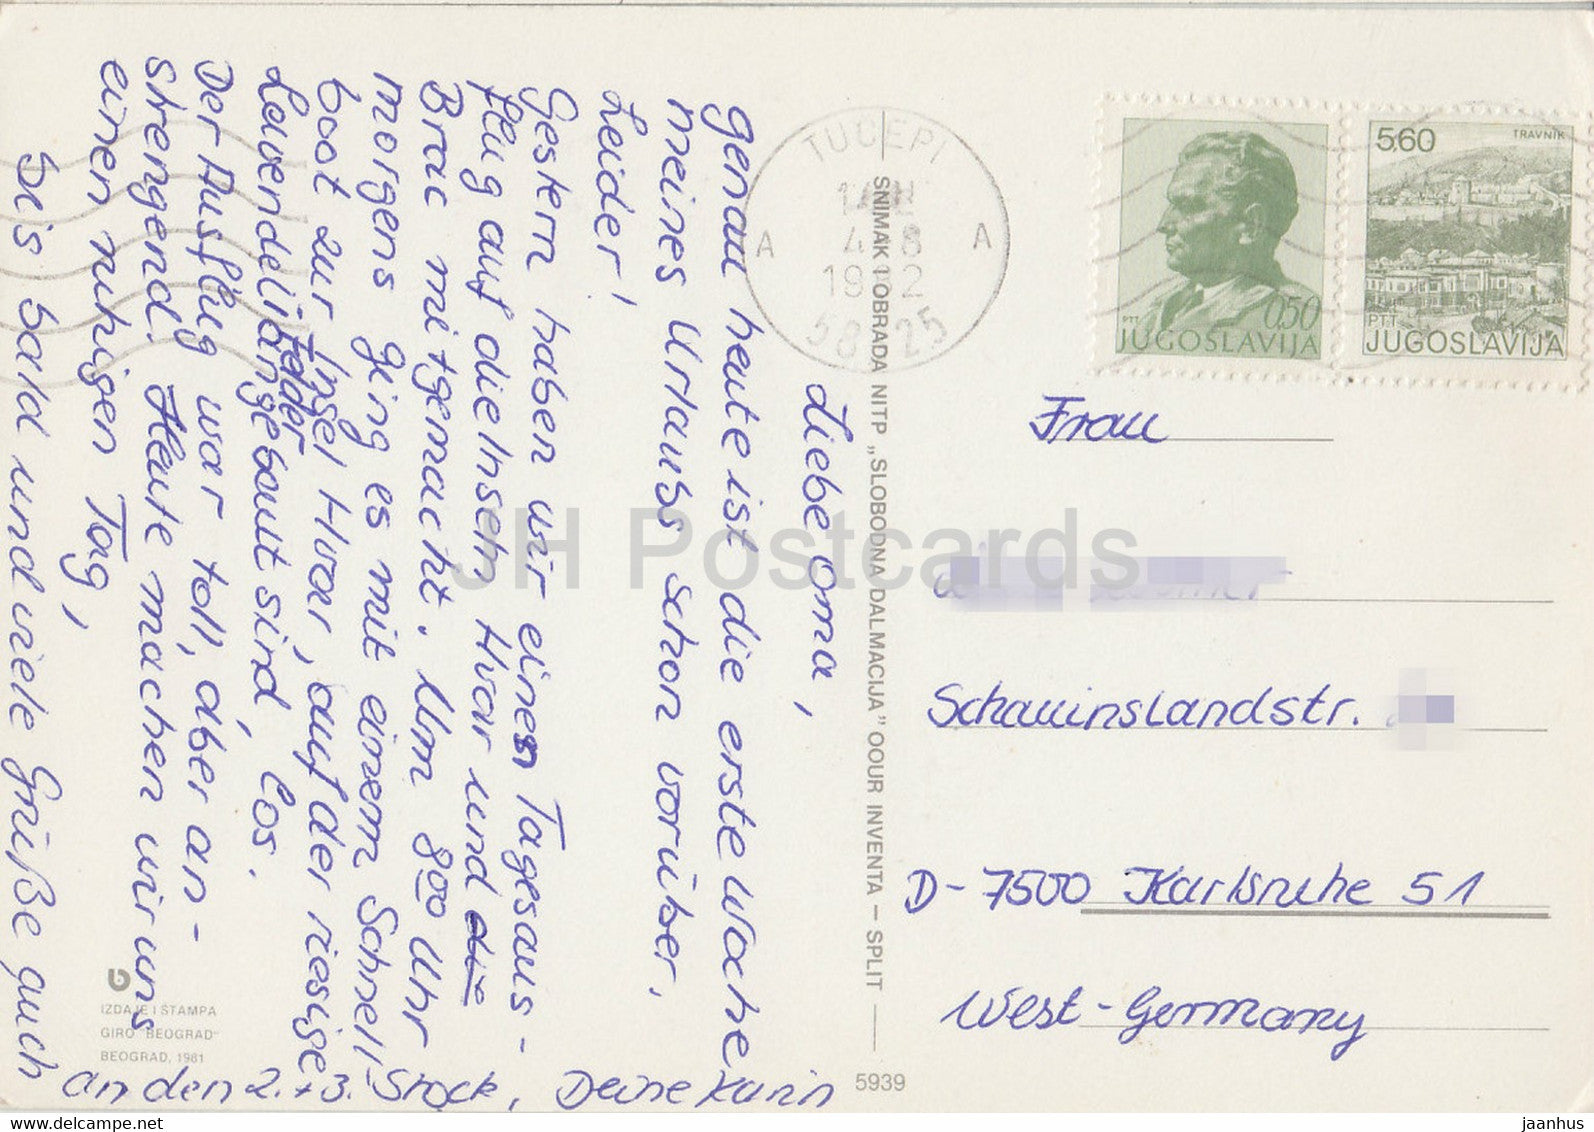 Liebe Oma,
genau heute ist die erste Woche
meines Urlaubs schon vorüber.
Leider!
Gestern haben wir einen Tagesaus-
flug auf die Inseln Hvar und die
Brac mitgemacht. Um 8 00 Uhr
morgens ging es mit einem Schnell-
boot zur Insel Hvar, auf der riesige
Lavendelfelder angebaut sind, los.
Der Ausflug war toll, aber an-
strengend. Heute machen wir uns
einen ruhigen Tag,
bis bald und viele Grüße auch
an den 2. + 3. Stock, Deine Karin
TUČEPI
A A
4 8
58325
SNIMAK 1 OBRADA NITP „SLOBODNA DALMACIJA" OOUR INVENTA — SPLIT
5939
IZDAJE I ŠTAMPA
GIRO "BEOGRAD"
BEOGRAD, 1981
0,50
PTT
JUGOSLAVIJA
5,60
TRAVNIK
PTT
JUGOSLAVIJA
Frau
Schauinslandstr.
D-7500 Karlsruhe 51
West-Germany
JH Postcards
www.delcampe.net
jaanhus